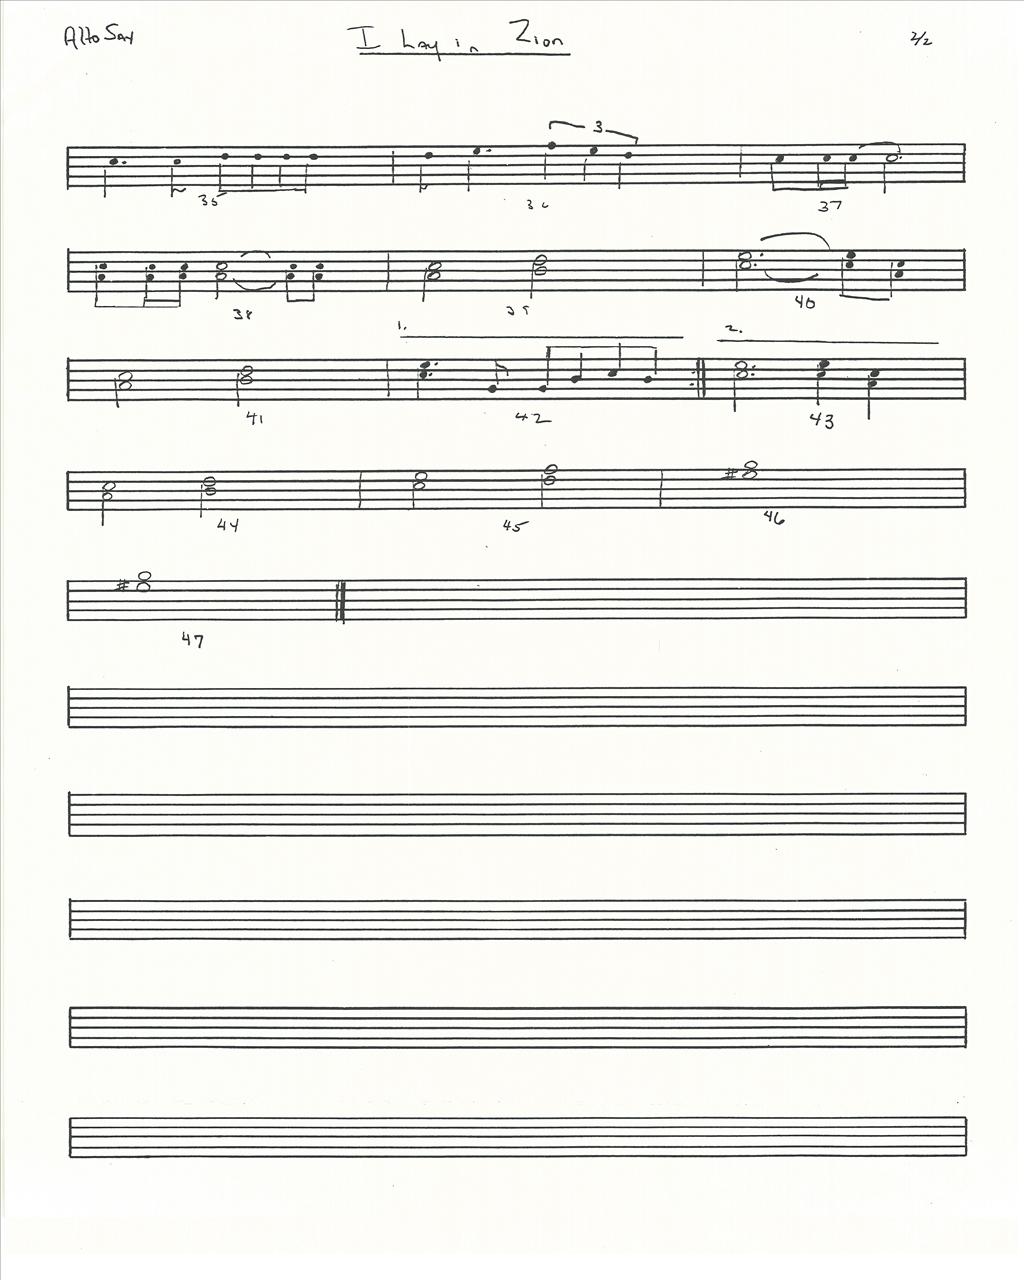 Alto Sax I Lay in Zion 2/2
3
35 36 37
38 39 40
1. 2.
41 42 43
44 45 46
47